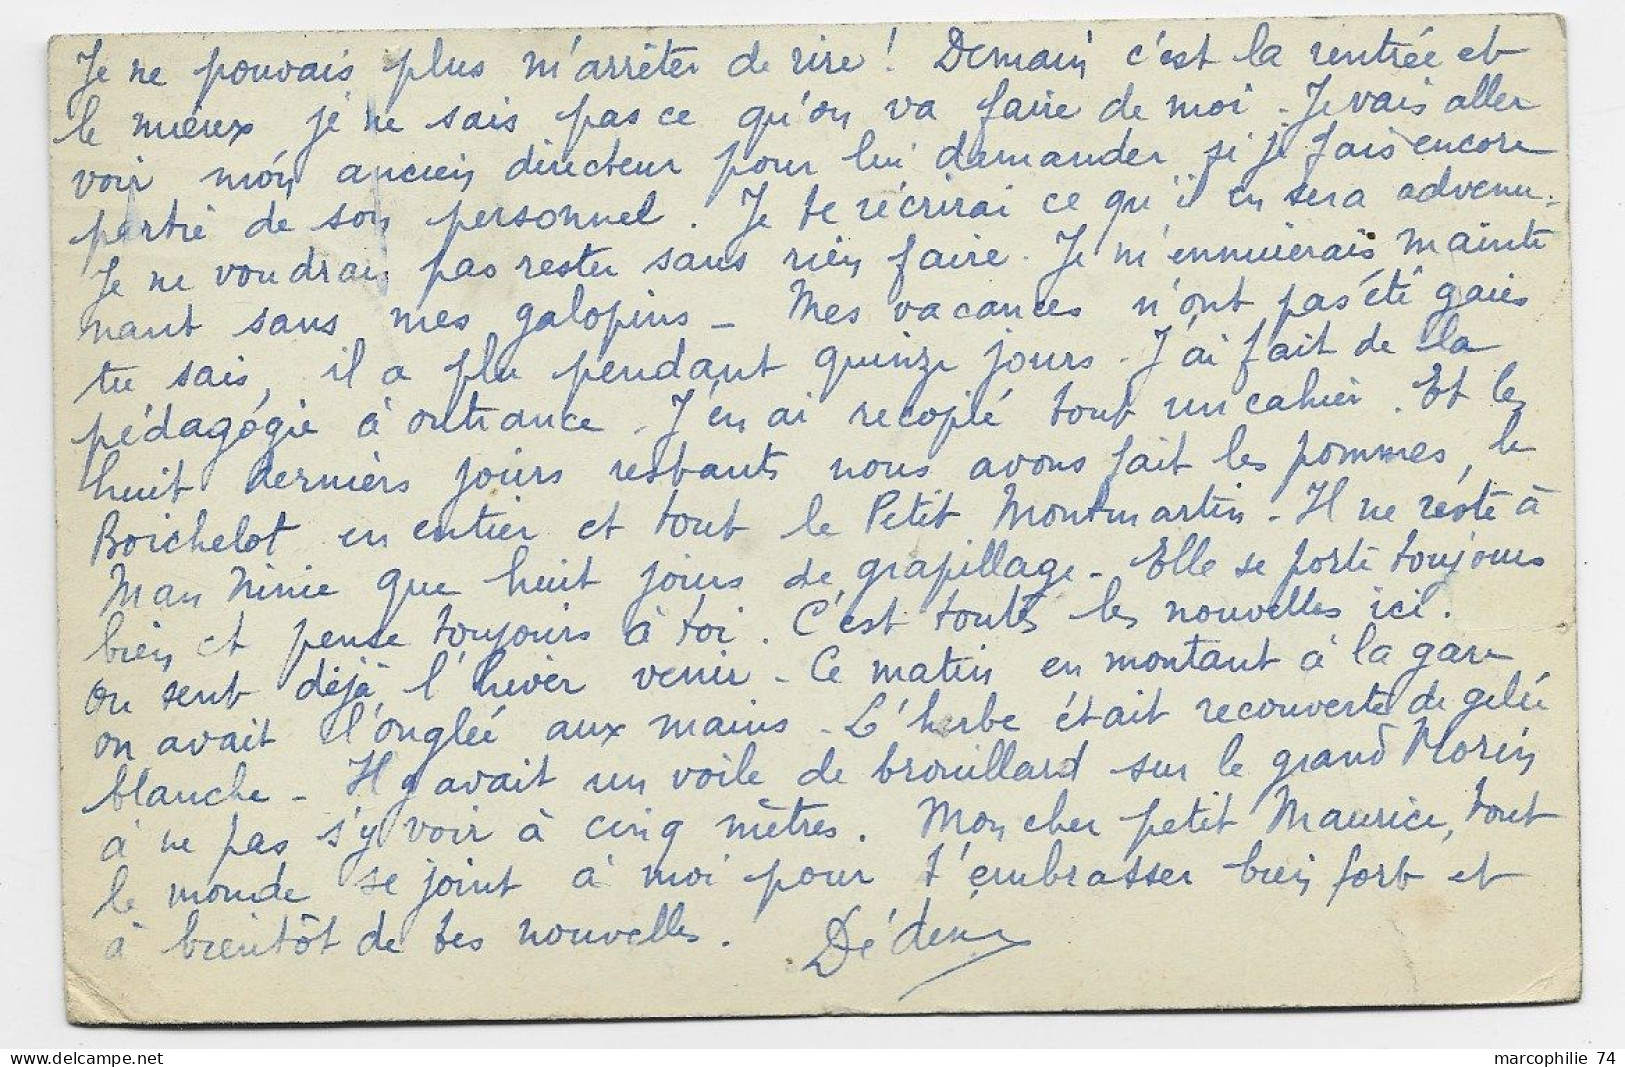 Je ne pouvais plus m'arrêter de rire ! Demain c'est la rentrée et
le mieux je ne sais pas ce qu'on va faire de moi. Je vais aller
voir mon ancien directeur pour lui demander si je fais encore
partie de son personnel. Je te récrirai ce qu'il en sera advenu.
Je ne voudrais pas rester sans rien faire. Je m'ennuierais mainte
nant sans mes galopins - Mes vacances n'ont pas été gaies
tu sais, il a plu pendant quinze jours. J'ai fait de la
pédagogie à outrance. J'en ai recopié tout un cahier. Et les
huit derniers jours restants nous avons fait les pommes, le
Boichelot en entier et tout le Petit Montmartin - Il ne reste à
Man Ninie que huit jours de grapillage - Elle se porte toujours
bien et pense toujours à toi. C'est toutes les nouvelles ici.
On sent déjà l'hiver venir - Ce matin en montant à la gare
on avait l'onglée aux mains - L'herbe était recouverte de gelée
blanche - Il y avait un voile de brouillard sur le grand Morin
à ne pas s'y voir à cinq mètres. Mon cher petit Maurice, tout
le monde se joint à moi pour t'embrasser bien fort et
à bientôt de tes nouvelles.
marcophilie 74